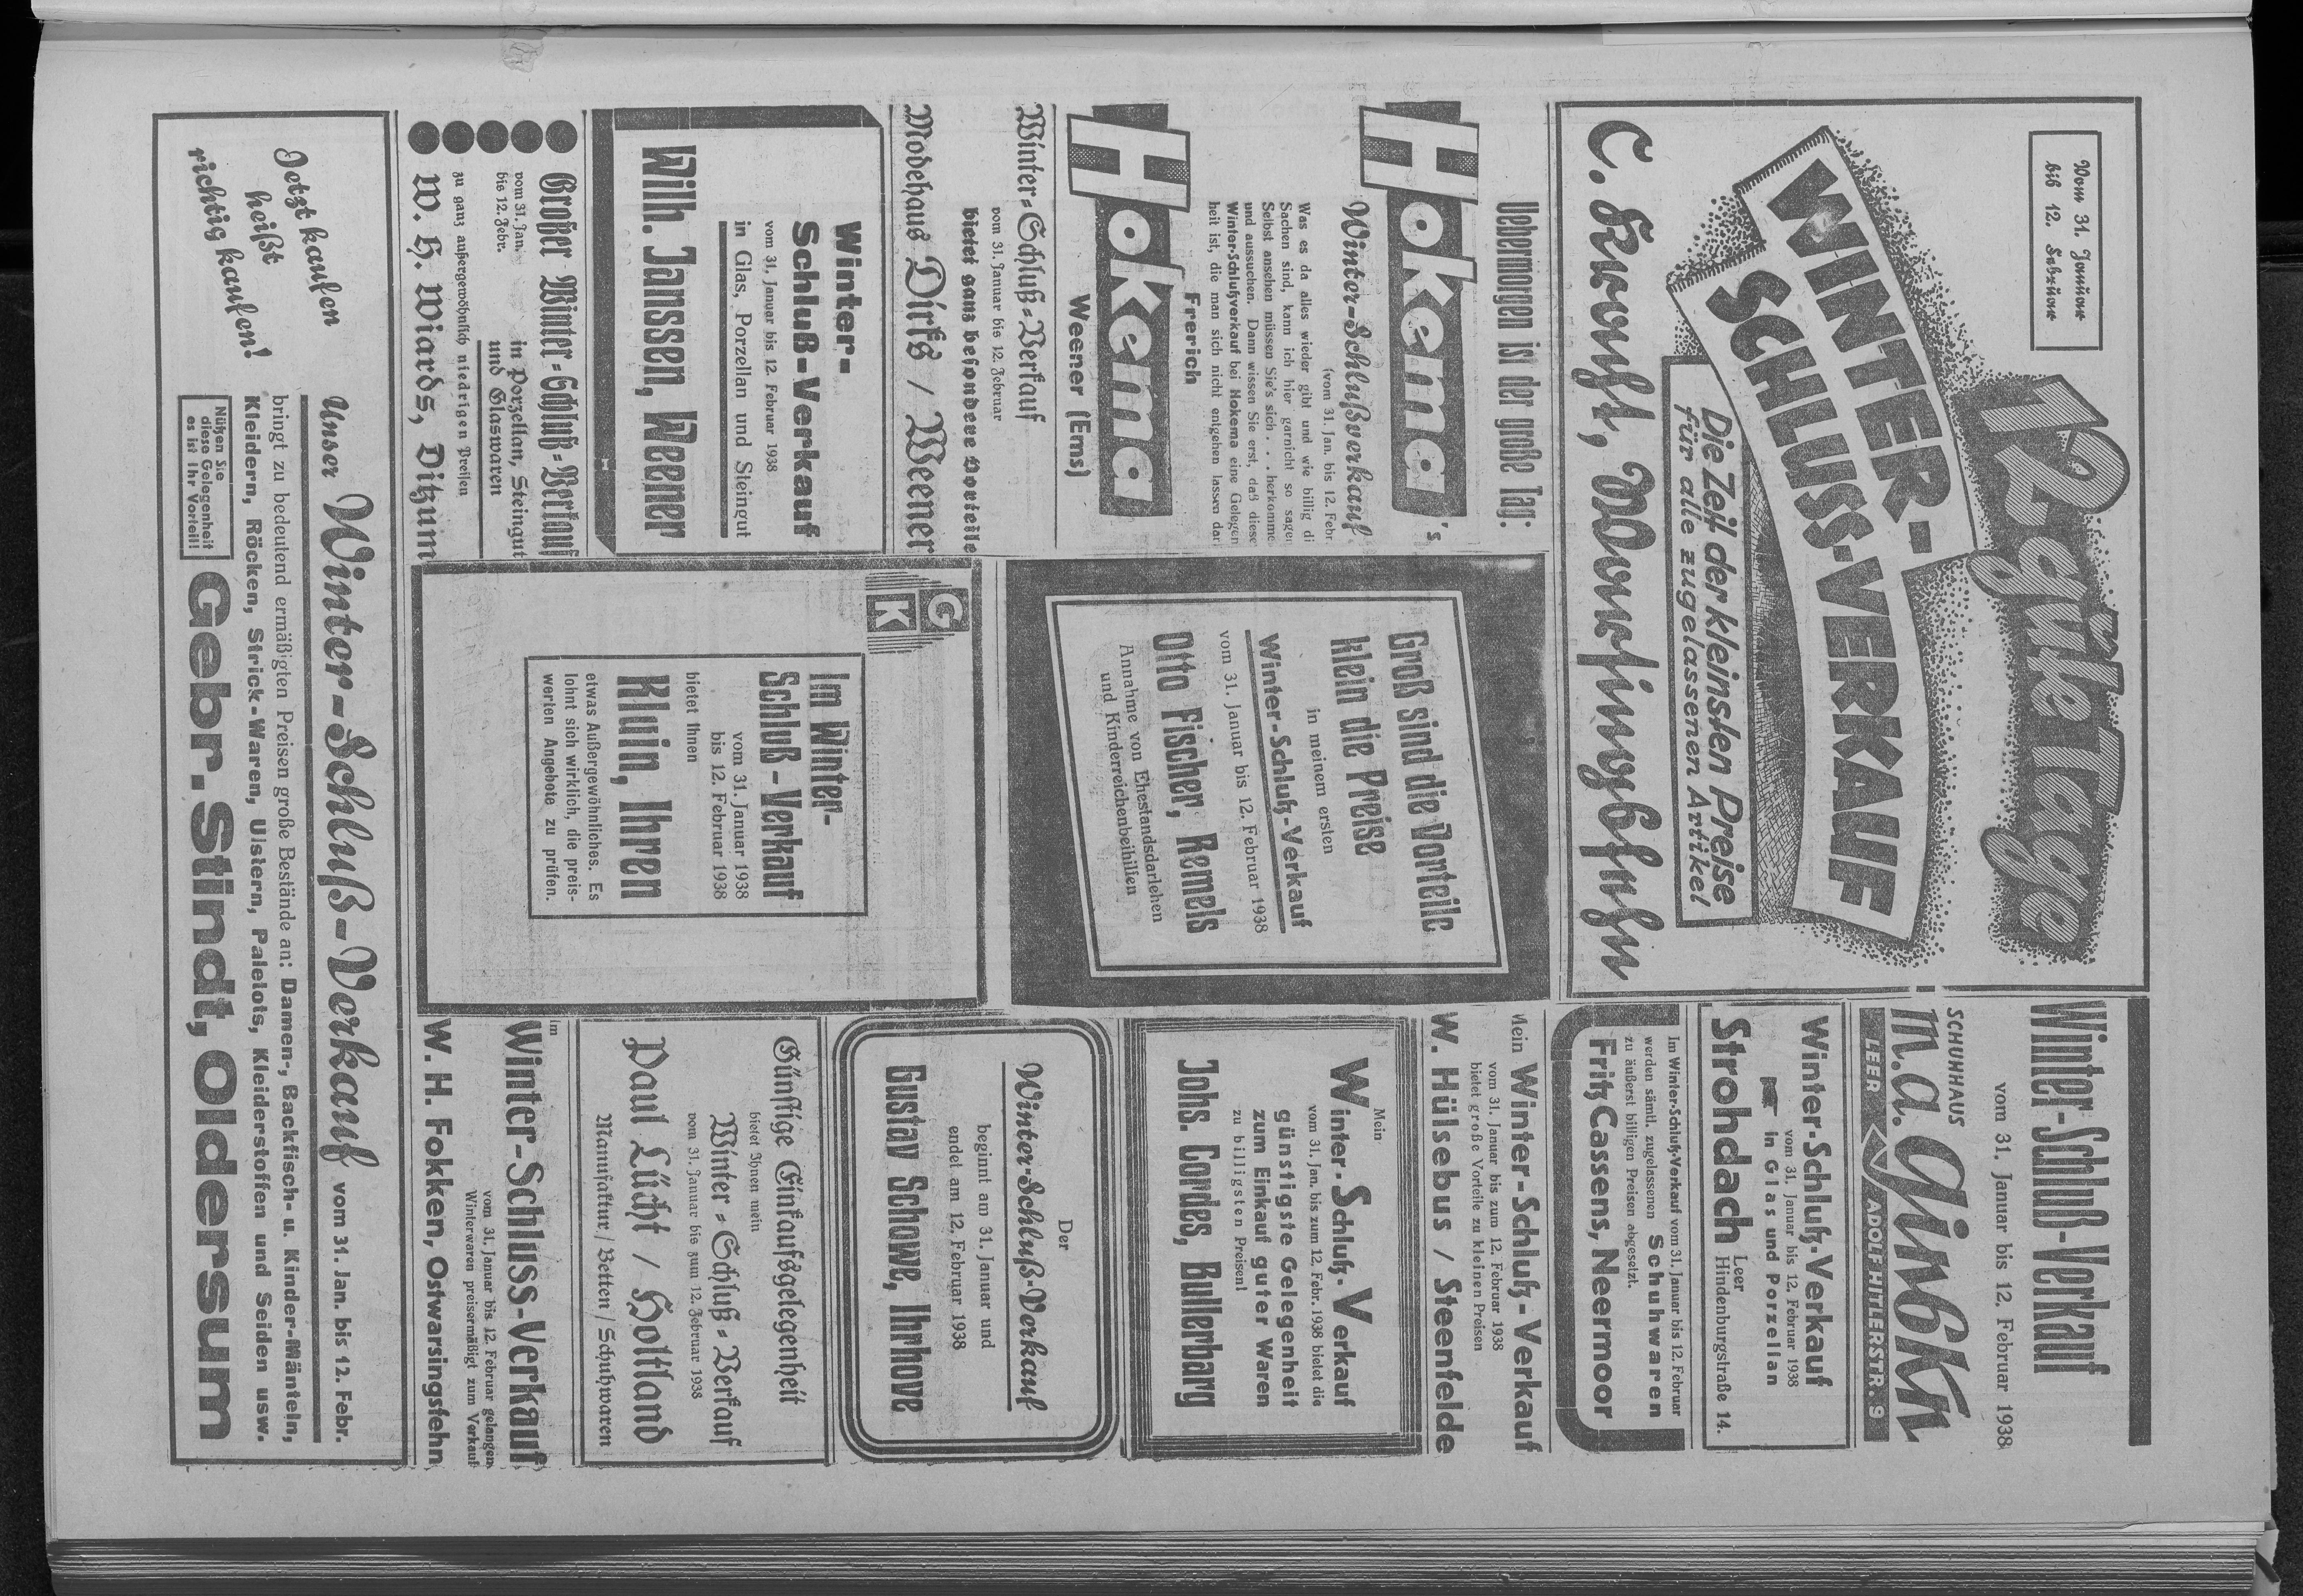 Vom 31. Januar
bis 12. Februar
12 gute Tage
WINTER-
SCHLUSS-VERKAUF
Die Zeit der kleinsten Preise
für alle zugelassenen Artikel
C. Kroeht, Warsingsfehn
Winter-Schluß-Verkauf
vom 31. Januar bis 12. Februar 1938
SCHUHHAUS
LEER
ADOLF HITLERSTR. 9
Winter-Schluß-Verkauf
vom 31. Januar bis 12. Februar 1938
in Glas und Porzellan
Strohdach Leer
Hindenburgstraße 14.
Im Winter-Schluß-Verkauf vom 31. Januar bis 12. Februar
werden sämtl. zugelassenen Schuhwaren
zu äußerst billigen Preisen abgesetzt.
Fritz Cassens, Neermoor
Mein Winter-Schluß-Verkauf
vom 31. Januar bis zum 12. Februar 1938
bietet große Vorteile zu kleinen Preisen
W. Hülsebus / Steenfelde
Mein
Winter-Schluß-Verkauf
vom 31. Jan. bis zum 12. Febr. 1938 bietet die
günstigste Gelegenheit
zum Einkauf guter Waren
zu billigsten Preisen!
Johs. Cordes, Bullerbarg
Der
Winter-Schluß-Verkauf
beginnt am 31. Januar und
endet am 12. Februar 1938
Gustav Schowe, Ihrhove
Günstige Einkaufsgelegenheit
bietet Ihnen mein
Winter-Schluß-Verkauf
vom 31. Januar bis zum 12. Februar 1938
Paul Lücht / Holtland
Manufaktur / Betten / Schuhwaren
Im
Winter-Schluss-Verkauf
vom 31. Januar bis 12. Februar gelangen
Winterwaren preisermäßigt zum Verkauf
W. H. Fokken, Ostwarsingsfehn
Uebermogen ist der große Tag:
Hokema's
Winter-Schlußverkauf
(vom 31. Jan. bis 12. Febr.
Was es da alles wieder gibt und wie billig di
Sachen sind, kann ich hier garnicht so sagen
Selbst ansehen müssen Sie's sich . . . herkomme
und aussuchen. Dann wissen Sie erst, daß diese
Winter-Schlußverkauf bei Hokema eine Gelegen
heit ist, die man sich nicht entgehen lassen dar
Frerich
Hokema
Weener (Ems)
Winter-Schluß-Verkauf
vom 31. Januar bis 12. Februar
bietet ganz besondere Vorteile
Modehaus Dirks / Weener
Winter-
Schluß-Verkauf
vom 31. Januar bis 12. Februar 1938
in Glas, Porzellan und Steingut
Wilh. Janssen, Weener
Großer Winter-Schluß-Verkauf
vom 31. Jan.
bis 12. Febr.
in Porzellan, Steingut
und Glaswaren
zu ganz außergewöhnlich niedrigen Preisen
W. H. Wiards, Ditzum
Groß sind die Vorteile
klein die Preise
in meinem ersten
Winter-Schluß-Verkauf
vom 31. Januar bis 12. Februar 1938
Otto Fischer, Remels
Annahme von Ehestandsdarlehen
und Kinderreichenbeihilfen
G
K
Im Winter-
Schluß-Verkauf
vom 31. Januar 1938
bis 12. Februar 1938
bietet Ihnen
Kluin, Ihren
etwas Außergewöhnliches. Es
lohnt sich wirklich, die preis-
werten Angebote zu prüfen.
Jetzt kaufen
heißt
richtig kaufen!
Unser Winter-Schluß-Verkauf vom 31. Jan. bis 12. Febr.
bringt zu bedeutend ermäßigten Preisen große Bestände an: Damen-, Backfisch- u. Kinder-Mänteln,
Kleidern, Röcken, Strick-Waren, Ulstern, Paletots, Kleiderstoffen und Seiden usw.
Nützen Sie
diese Gelegenheit
es ist Ihr Vorteil!
Gebr. Stindt, Oldersum